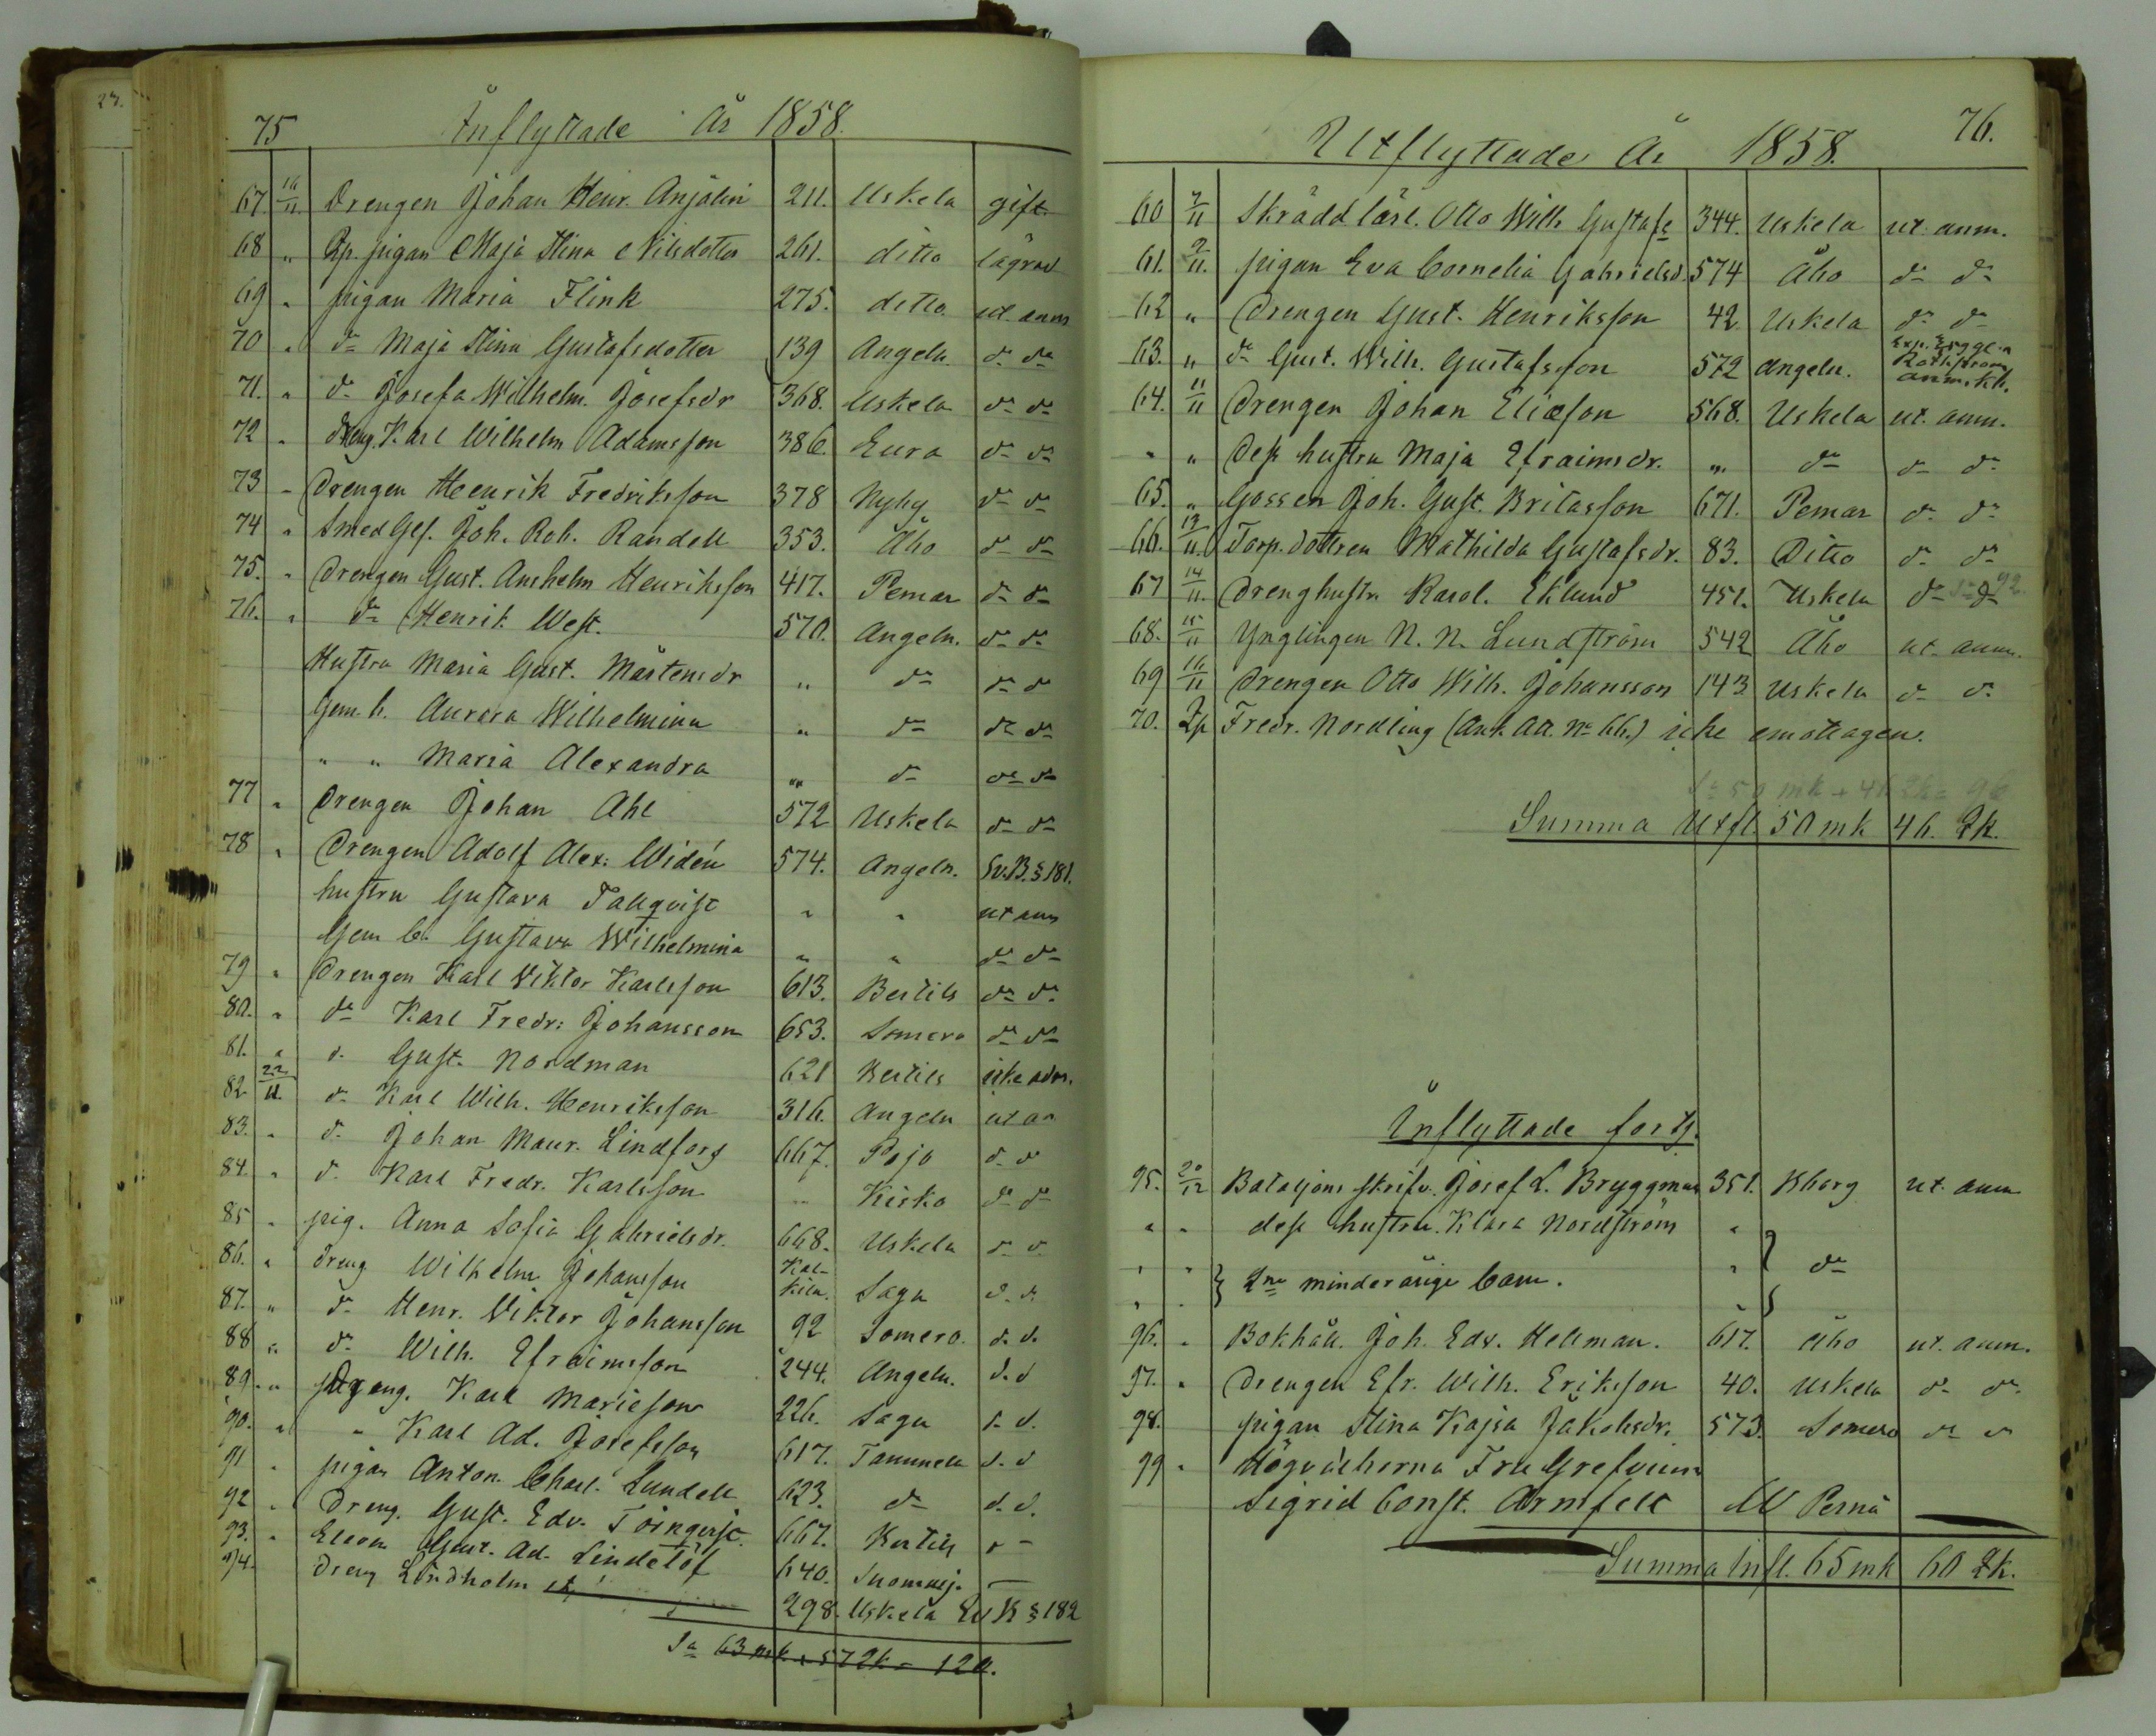 27.
75 Inflyttade År 1858.
67. 16/11. Drengen Johan Henr. Anjalin 211. Uskela gift.
68 " Rp. pigan Maja Stina Nilsdotter 261. ditto lägrad
69 " pigan Maria Flink 275. ditto ut anm
70 " d:o Maja Stina Gustafsdotter 139 Angeln. d:o d:o
71. " d:o Josefa Wilhelm. Josefsdr 368. Uskela d:o d:o
72 " dreng. Karl Wilhelm Adamsson 386. Eura d:o d:o
73 " Drengen Henrik Fredriksson 378 Nyby d:o d:o
74 " Smed Ges. Joh. Rob. Randell 353. Åbo d:o d:o
75. " Drengen Gust. Anshelm Henriksson 417. Pemar d:o d:o
76. " d:o Henrik West. 570. Angeln. d:o d:o
Hustru Maria Gust. Mårtensdr " d:o d:o d:o
Gem. b. Aurora Wilhelmina " d:o d:o d:o
" " Maria Alexandra " d:o d:o d:o
77 " Drengen Johan Ahl 572 Uskela d:o d:o
78 " Drengen Adolf Alex: Widén 574. Angeln. Ev.B. § 181.
hustru Gustava Tallqvist " " ut anm
Gem b. Gustava Wilhelmina " " d:o d:o
79 " Drengen Karl Viktor Karlsson 613. Bertils d:o d:o
80. " d:o Karl Fredr: Johansson 653. Somero d:o d:o
81. " d:o Gust. Nordman 621 Bertils icke adm.
82 22/11. d:o Karl Wilh. Henriksson 316. Angeln ut an
83. " d:o Johan Maur. Lindfors 667. Pojo d:o d:o
84. " d:o Karl Fredr. Karlsson " Kisko d:o d:o
85 " pig. Anna Sofia Gabrielsdr. 668. Uskela d:o d:o
86. " dreng Wilhelm Johansson Kal-kila. Sagu d. d.
87. " d:o Henr. Viktor Johansson 92 Somero. d. d.
88 " d:o Wilh. Efraimsson 244. Angeln. d. d
89. " Dreng. Karl Mariesson 226. Sagu d. d.
90. " " Karl Ad. Josefsson 617. Tammela d. d
91 " pigan Anton. Charl. Lundell 623. d:o d. d.
92 " Dreng. Gust. Edv. Törnqvist. 667. Bertils
93. " Eleven Gust. Ad. Lindelöf 640. Suomusj. —
94. Dreng Lindholm 298. Uskela Ev K § 182
S:a 63 mk + 57 Qk = 120.
Utflyttade År 1858. 76.
60 7/11 Skrädd. lärl. Otto Wilh Gustafs 344. Uskela ut. anm.
61. 9/11. pigan Eva Cornelia Gabrielsd. 574 Åbo d:o d:o
62 " Drengen Gust. Henriksson 42 Uskela d:o d:o
63. " d:o Gust. Wilh. Gustafsson 572 Angeln. Exp. Rothstrom anm. kb.
64. 11/11 Drengen Johan Eliæson 568. Uskela ut. anm.
" " Dess hustru Maja Efraimsdr. " d:o d:o d:o
65. " Gossen Joh. Gust. Britasson 671. Pemar d:o d:o
66. 13/11. Torp. dottren Mathilda Gustafsdr. 83. Ditto d:o d:o
67 14/11. Drenghustr. Karol. Eklund 451. Uskela d:o d:o
68. 15/11 Ynglingen N. N. Lundström 542 Åbo ut. anm.
69 16/11 Drengen Otto Wilh. Johansson 143 Uskela d:o d:o
70. Fredr. Nordling (Ank. Att. No 66.) icke emottagen.
S:a 50 mk + 46 Qk = 96
Summa Utfl. 50 mk 46. Qk.
Inflyttade forts.
95. 20/12 Bataljons skrifv. Josef L. Bryggman 351. Kborg ut. anm
" " dess hustru Klara Nordström "
" " } 2:ne minderårige barn. " } d:o
96. " Bokhåll. Joh. Edv. Hellman. 617. Åbo ut. anm.
97. " Drengen Efr. Wilh. Eriksson 40. Uskela d:o d:o
98. pigan Stina Kajsa Jakobsdr. 573. Somero d:o d:o
99 " Högvälborna Fru Grefvinn
Sigrid Const. Armfelt Pernå —
Summa Infl. 65 mk 60 Qk.